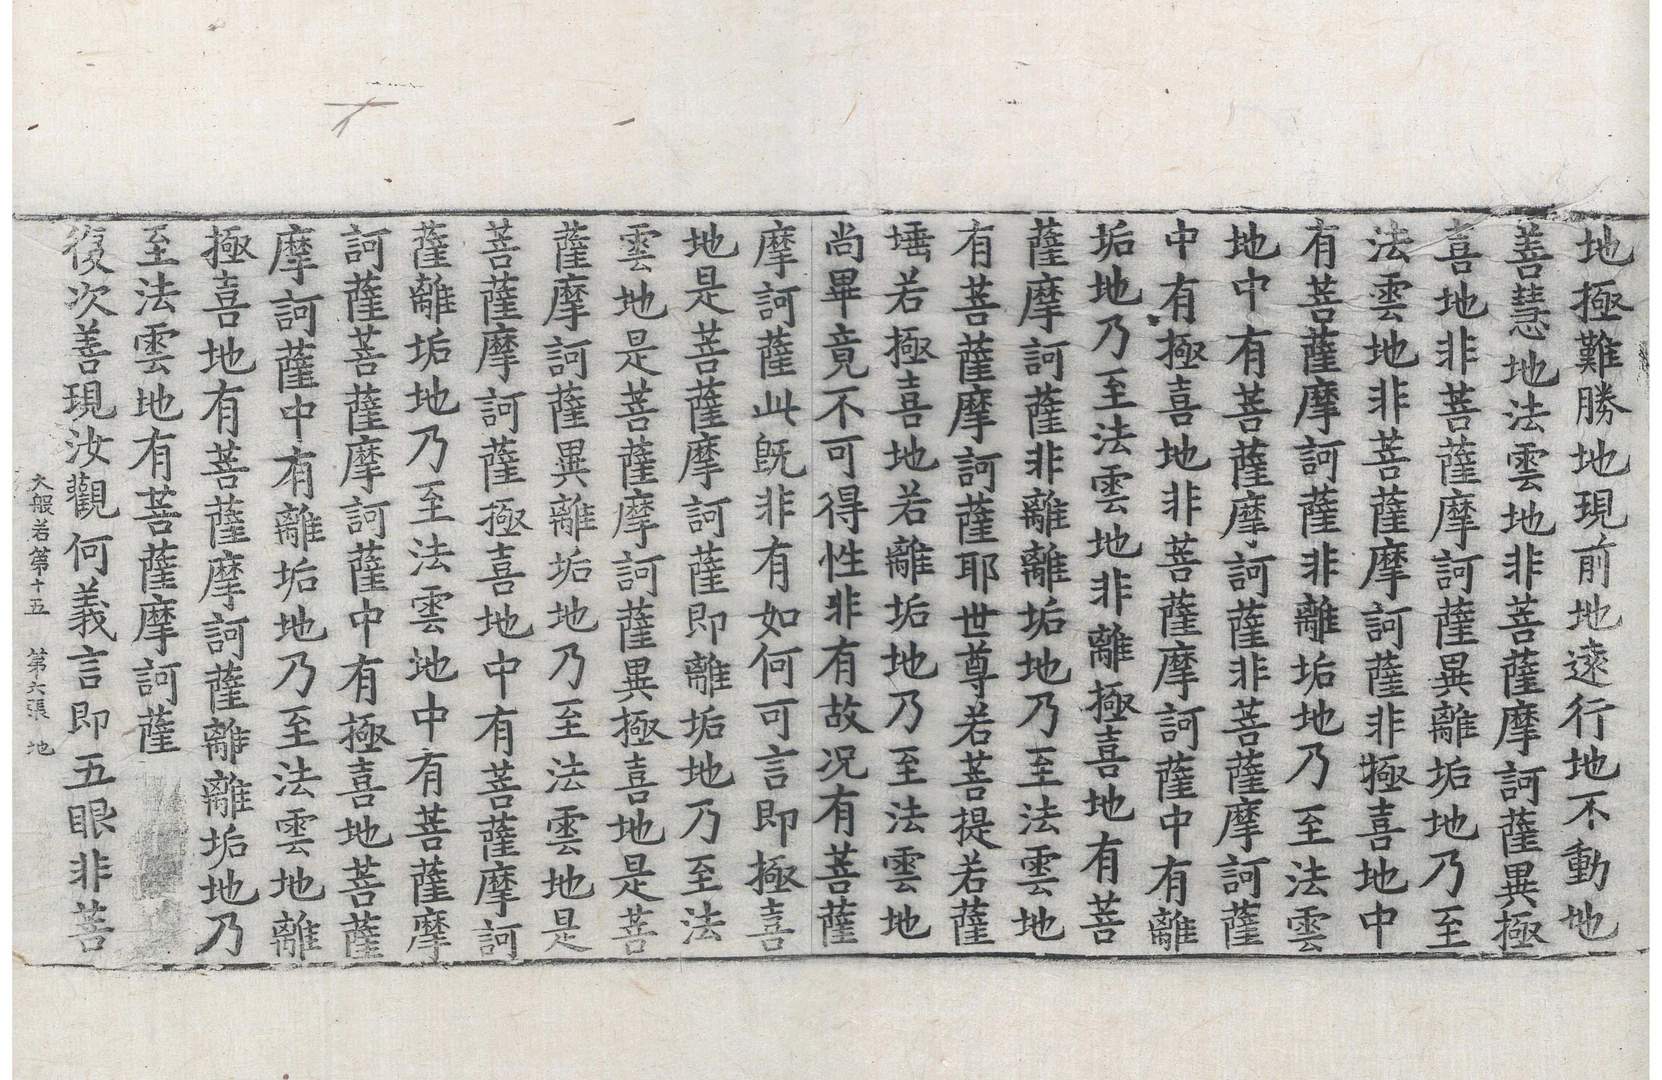 地極難勝地現前地遠行地不動地
善慧地法雲地非菩薩摩訶薩異極
喜地非菩薩摩訶薩異離垢地乃至
法雲地非菩薩摩訶薩非極喜地中
有菩薩摩訶薩非離垢地乃至法雲
地中有菩薩摩訶薩非菩薩摩訶薩
中有極喜地非菩薩摩訶薩中有離
垢地乃至法雲地非離極喜地有菩
薩摩訶薩非離離垢地乃至法雲地
有菩薩摩訶薩耶世尊若菩提若薩
埵若極喜地若離垢地乃至法雲地
尚畢竟不可得性非有故况有菩薩
摩訶薩此既非有如何可言即極喜
地是菩薩摩訶薩即離垢地乃至法
雲地是菩薩摩訶薩異極喜地是菩
薩摩訶薩異離垢地乃至法雲地是
菩薩摩訶薩極喜地中有菩薩摩訶
薩離垢地乃至法雲地中有菩薩摩
訶薩菩薩摩訶薩中有極喜地菩薩
摩訶薩中有離垢地乃至法雲地離
極喜地有菩薩摩訶薩離離垢地乃
至法雲地有菩薩摩訶薩
復次善現汝觀何義言即五眼非菩
大般若第十五 第六張 地